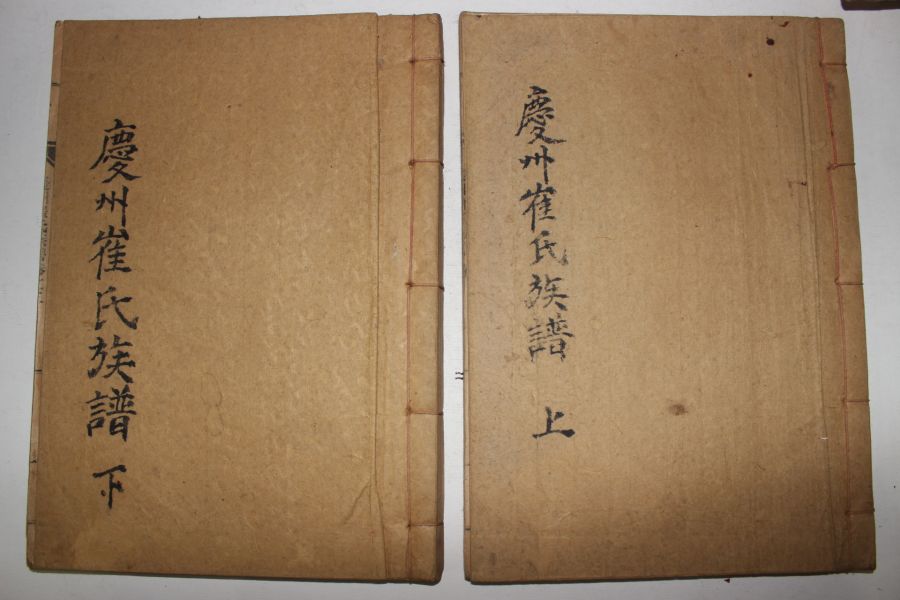 慶州崔氏族譜 上
慶州崔氏族譜 下